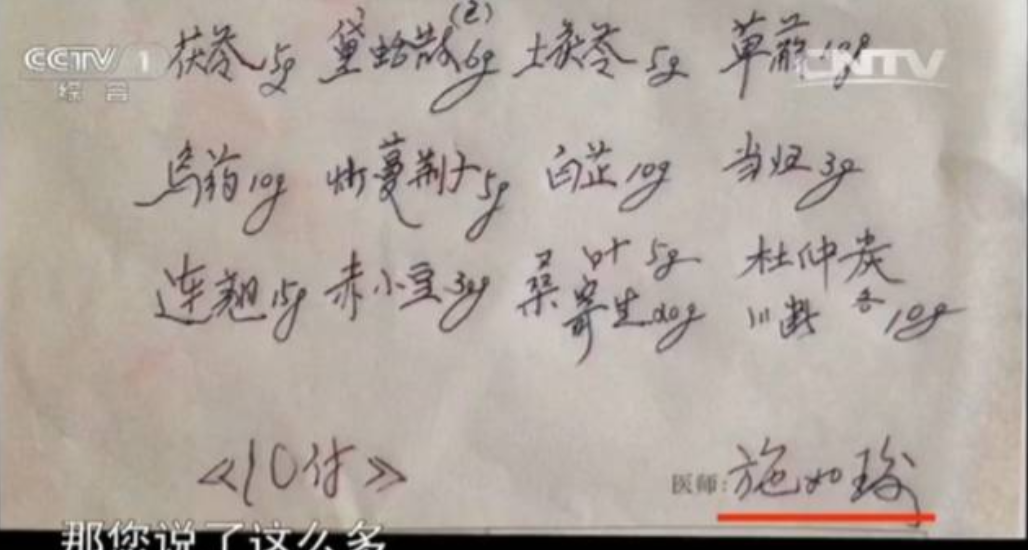 CCTV 1
综合
CNTV
茯苓5g 黛蛤散(包)6g 土茯苓5g 草薢10g
乌药10g 炒蔓荆子5g 白芷10g 当归3g
连翘15g 赤小豆30g 桑叶5g 杜仲炭
寄生20g 川断各10g
《10付》
医师:施如瑜
那您说了这么多